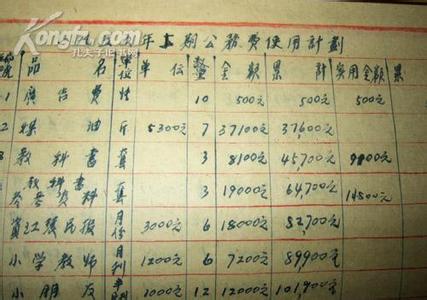 Kongfz.com
孔夫子旧书网
年上期公務費使用計劃
品名 單位 單价 數 金額 累計 实用金額 累
1 廣告費 10 500元 500元 500元
2 煤油 斤 5300元 7 37100元 37,600元
3 教科書 套 3 8100元 45,700元
教科書
参考資料 套 3 19000元 64,700元 14800元
資江強民报 月份 3000元 6 18000元 82,700元
小学教师 月刊 1200元 6 7200元 89,900元
小朋友 1000元 12 12000元 101,900元